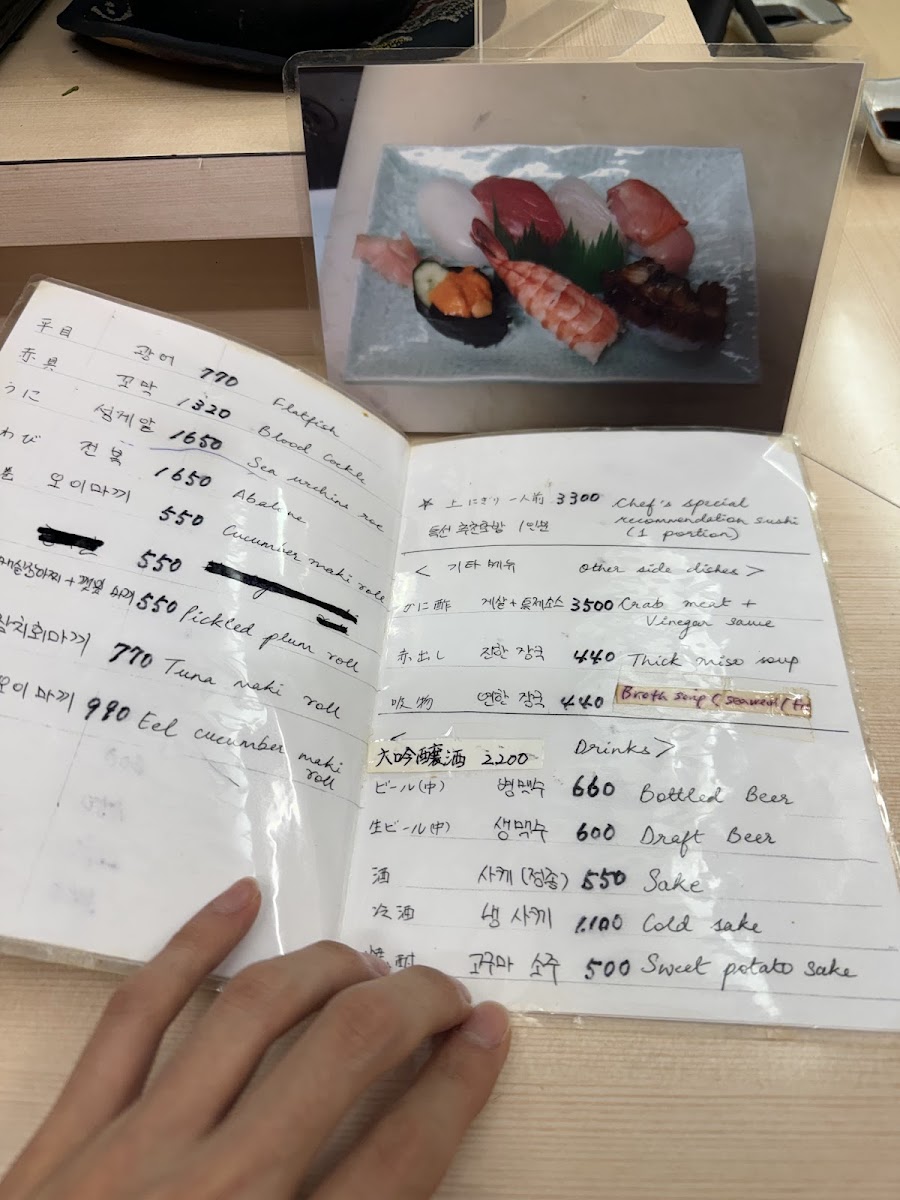 平目 광어 770 Flatfish
赤貝 꼬막 1320 Blood Cockle
うに 성게알 1650 Sea urchins roe
わび 전복 1650 Abalone
오이마끼 550 Cucumber maki roll
550
매실장아찌 + 깻잎 마끼 550 Pickled plum roll
참치회마끼 770 Tuna maki roll
오이마끼 990 Eel cucumber maki roll
* 上にぎり一人前 3300 Chef's special
특선 추천초밥 1인분 recommendation sushi
(1 portion)
< 기타메뉴 Other side dishes >
かに酢 게살+특제소스 3500 Crab meat +
Vinegar sauce
赤出し 진한 장국 440 Thick miso soup
吸物 연한 장국 440 Broth soup (seaweed/
< Drinks >
大吟醸酒 2200
ビール(中) 병맥수 660 Bottled Beer
生ビール(中) 생맥수 600 Draft Beer
酒 사케(정종) 550 Sake
冷酒 냉 사끼 1.100 Cold sake
焼酎 고구마 소주 500 Sweet potato sake